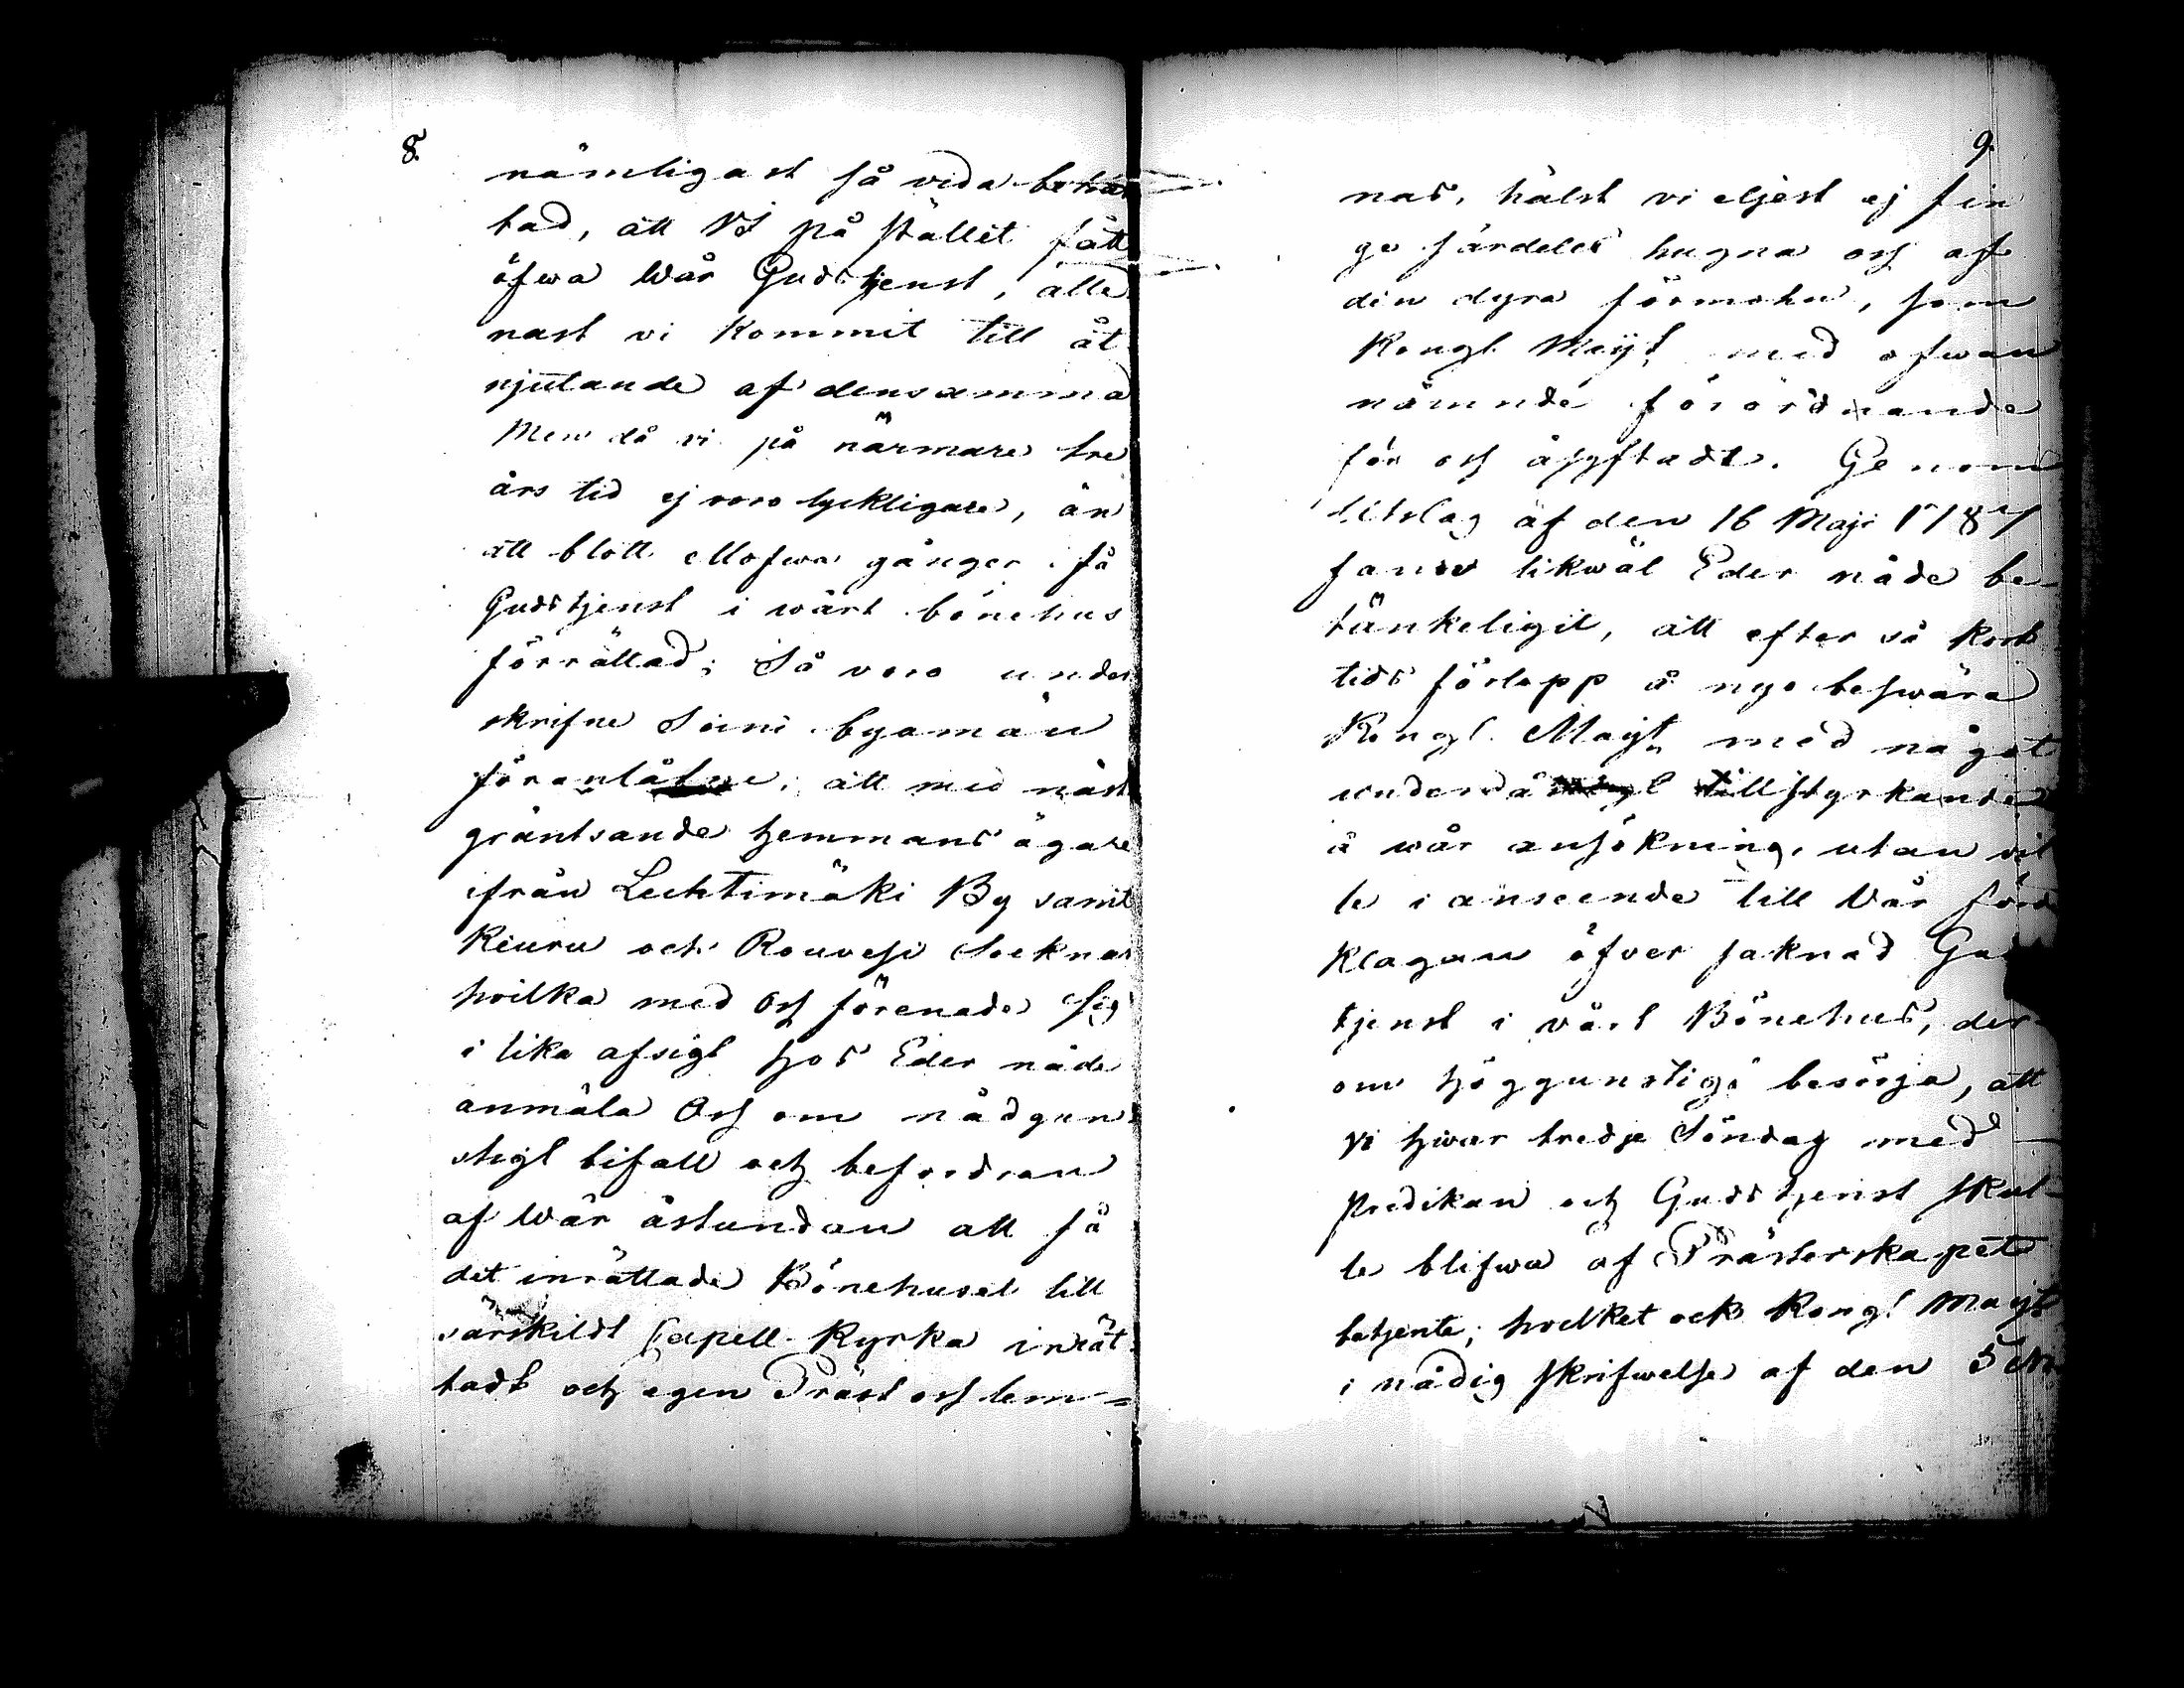 8.
nämligast så vida
tad, att Vi på stället fått
öfwa Wår Gudstjenst, alle
nast vi kommit till åt
njutande af densamma
Men då vi på närmare tre
års tid ej voro lyckligare, än
att blott ellofwa gånger få
Gudstjenst i wårt bönehus
förrättad; Så voro under
skrifne Soini byamän
föranlåtne, att med näst
gräntsande hemmans ägare
ifrån Lechtimäki By samt
Keuru och Rouvesi Socknar
hvilka med Oss förenade Sig
i lika afsigt hos Eder nåde
anmäla Oss om nådgun
stigt bifall och befordran
af Wår åstundan att få
det inrättade Bönehuset till
särskildt Capell-Kyrka inrät
tadt och egen Präst oss lem=
9.
nas, hälst vi eljest ej fin
ge särdeles hugna oss af
din dyra förmohn, som
Kongl. Mayt med ofwan
nämnde förordnande
för oss åsyftadt. Genom
Utslag af den 16 Maji 1787
fanns likwäl Eder nåde be-
tänkeligit, att efter så kort
tids förlopp å nyo beswära
Kongl. Mayt med något
tillstyrkande
å wår ansökning, utan vil
le i anseende till Vår förd
klagan öfver saknad Gud
tjenst i vårt Bönehus, der-
om höggunstigt besörja, att
vi hwar tredje Söndag med
predikan och Gudstjenst skul-
le blifwa af Prästerskapet
betjente; hvilket ock Kongl Mayt
i nådig skrifwelse af den 5